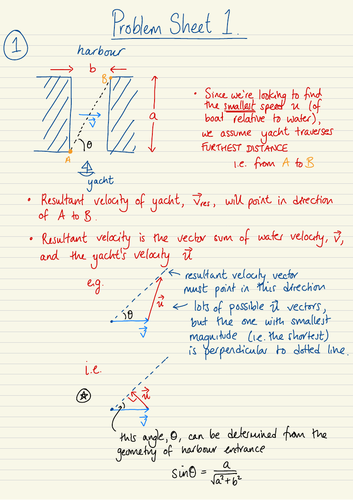 Problem Sheet 1.
1
harbour
b
B
v
a
θ
A
yacht
• Since we're looking to find
the smallest speed u (of
boat relative to water),
we assume yacht traverses
FURTHEST DISTANCE
i.e. from A to B
• Resultant velocity of yacht, v⃗res, will point in direction
of A to B.
• Resultant velocity is the vector sum of water velocity, v⃗,
and the yacht's velocity u⃗
e.g.
resultant velocity vector
must point in this direction
θ
u⃗
v⃗
lots of possible u⃗ vectors,
but the one with smallest
magnitude (i.e. the shortest)
is perpendicular to dotted line.
i.e.
u⃗
v⃗
this angle, θ, can be determined from the
geometry of harbour entrance
sinθ = a/√(a²+b²)